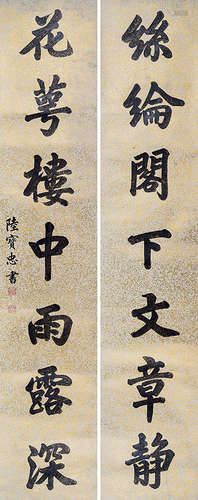 絲綸閣下文章静
花萼樓中雨露深
陸寶忠書